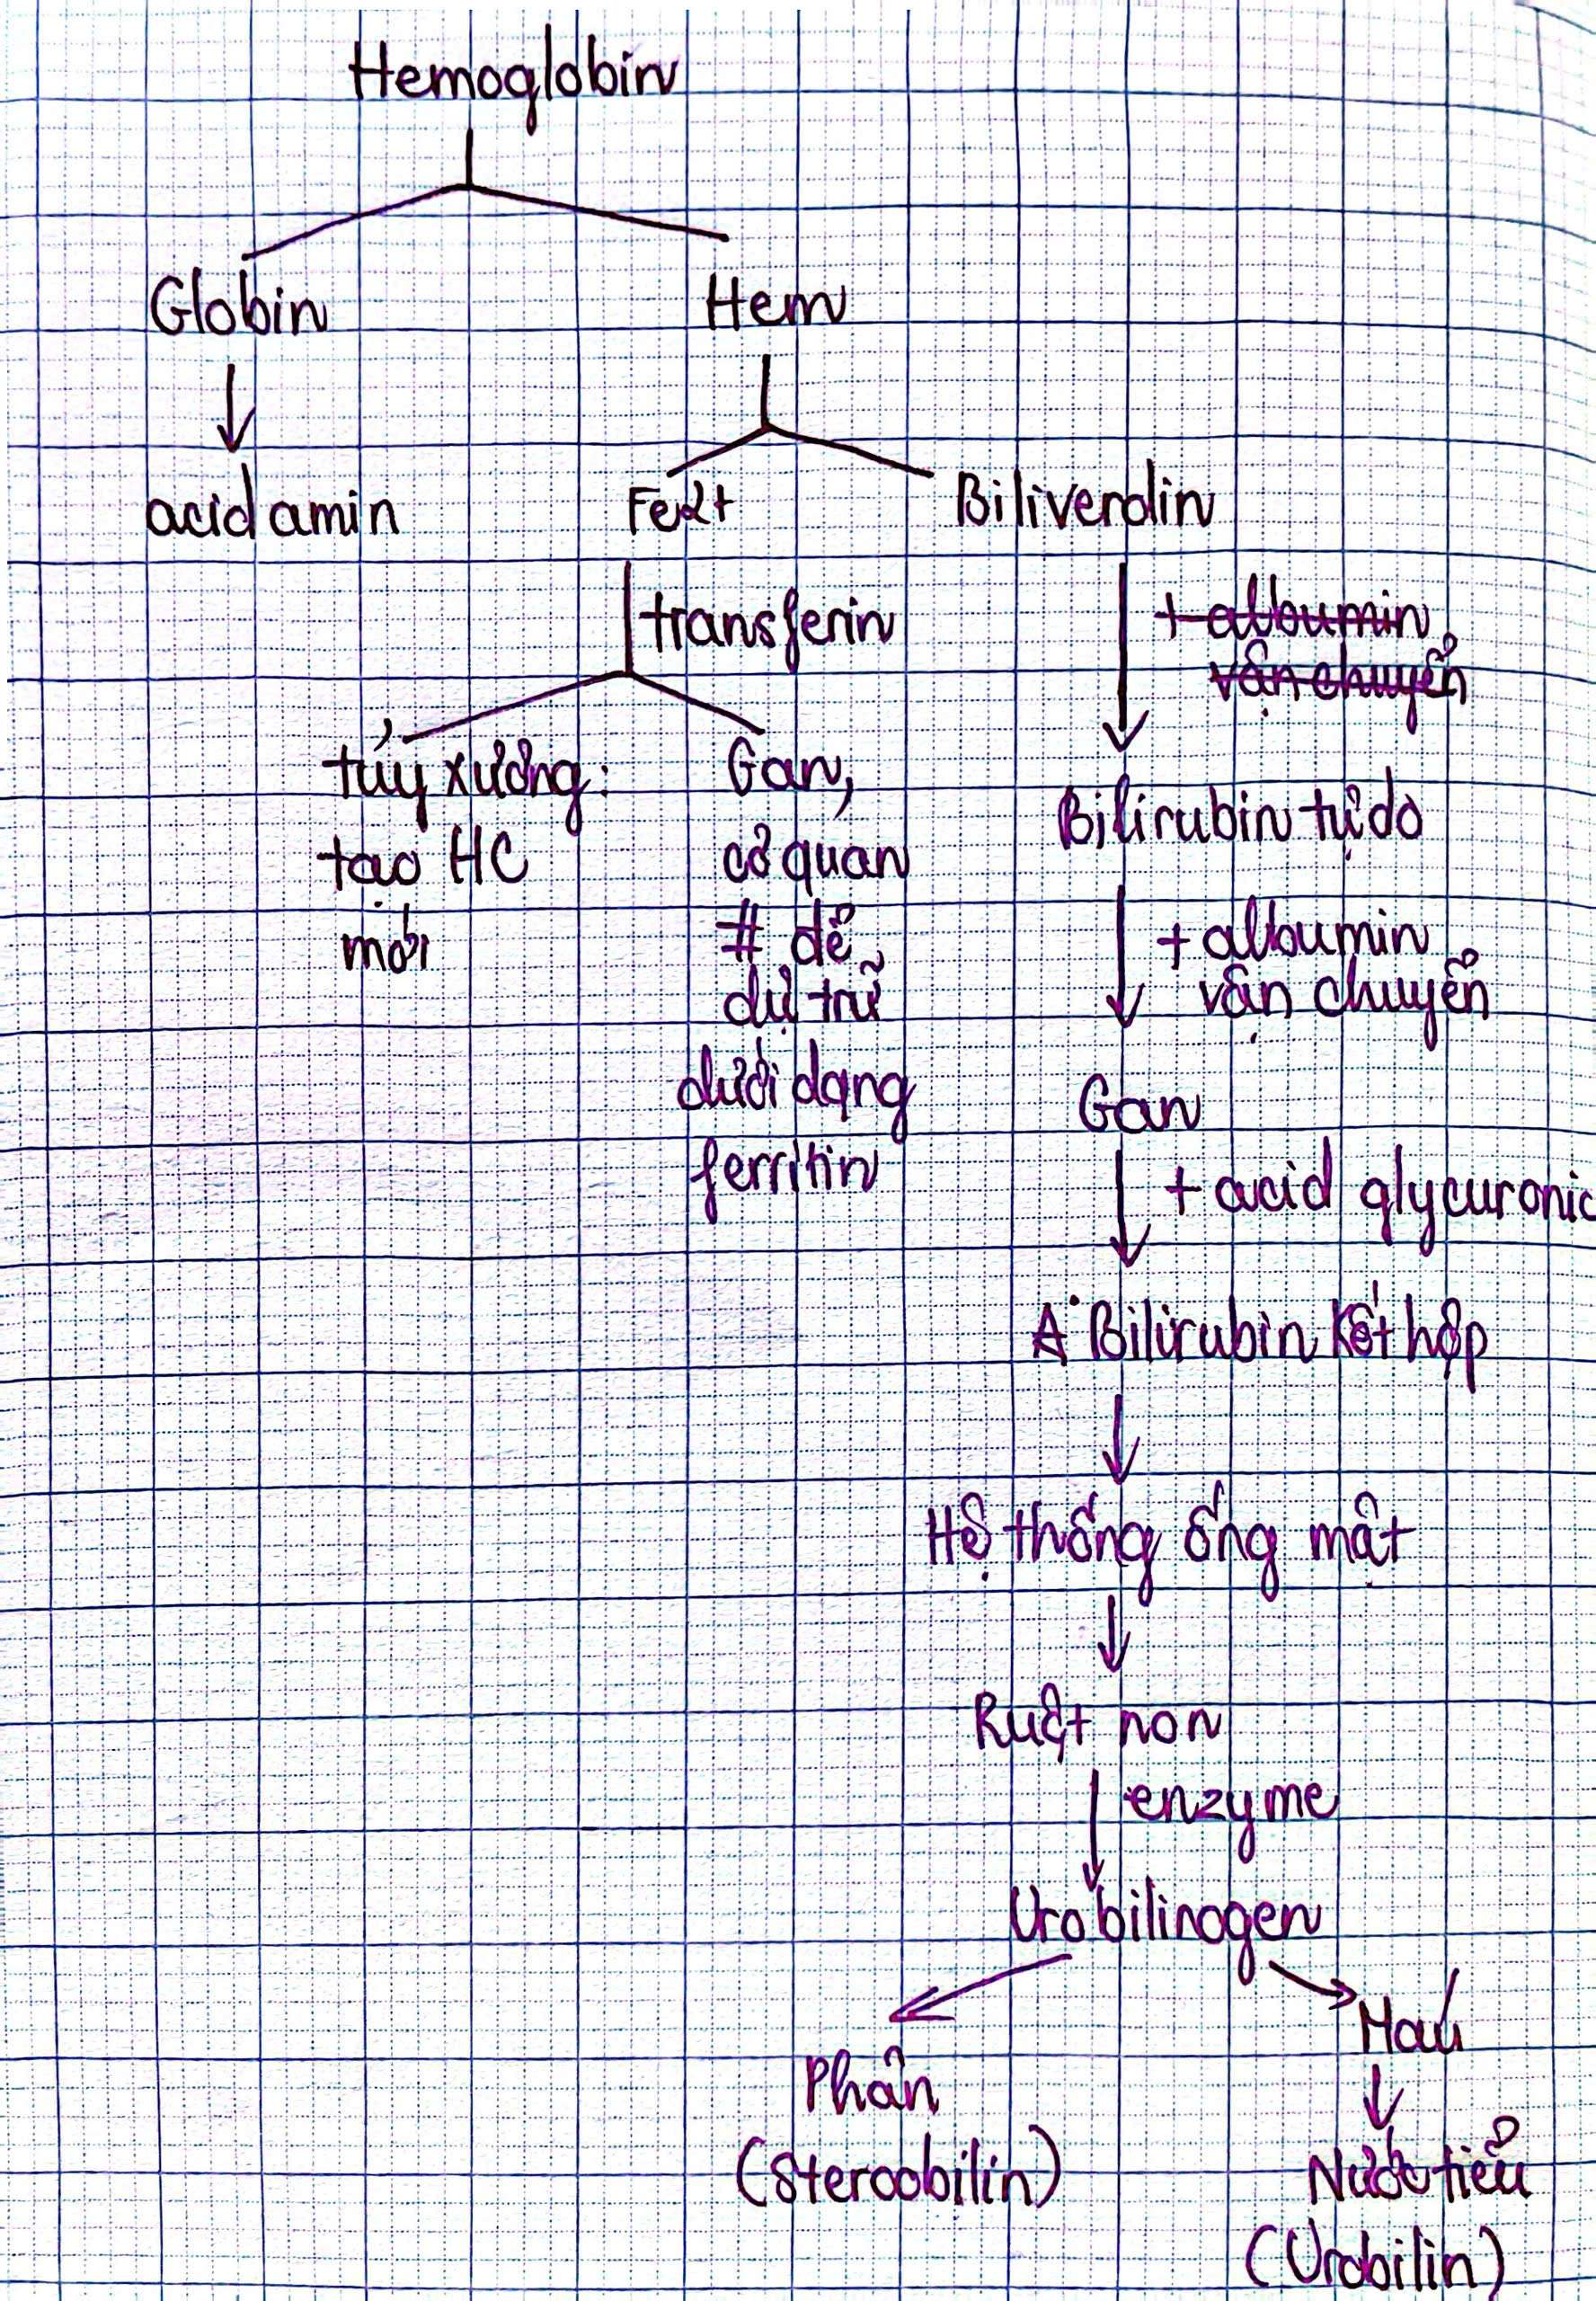 Hemoglobin
Globin
Hem
acid amin
Fe2+
Biliverdin
transferin
+ albumin
vận chuyển
tủy xương:
tạo HC
mới
Gan,
cơ quan
# để
dự trữ
dưới dạng
ferritin
Bilirubin tự do
+ albumin
vận chuyển
Gan
+ acid glycuronic
A Bilirubin kết hợp
Hệ thống ống mật
Ruột non
enzyme
Urobilinogen
Phân
(Stercobilin)
Máu
Nước tiểu
(Urobilin)